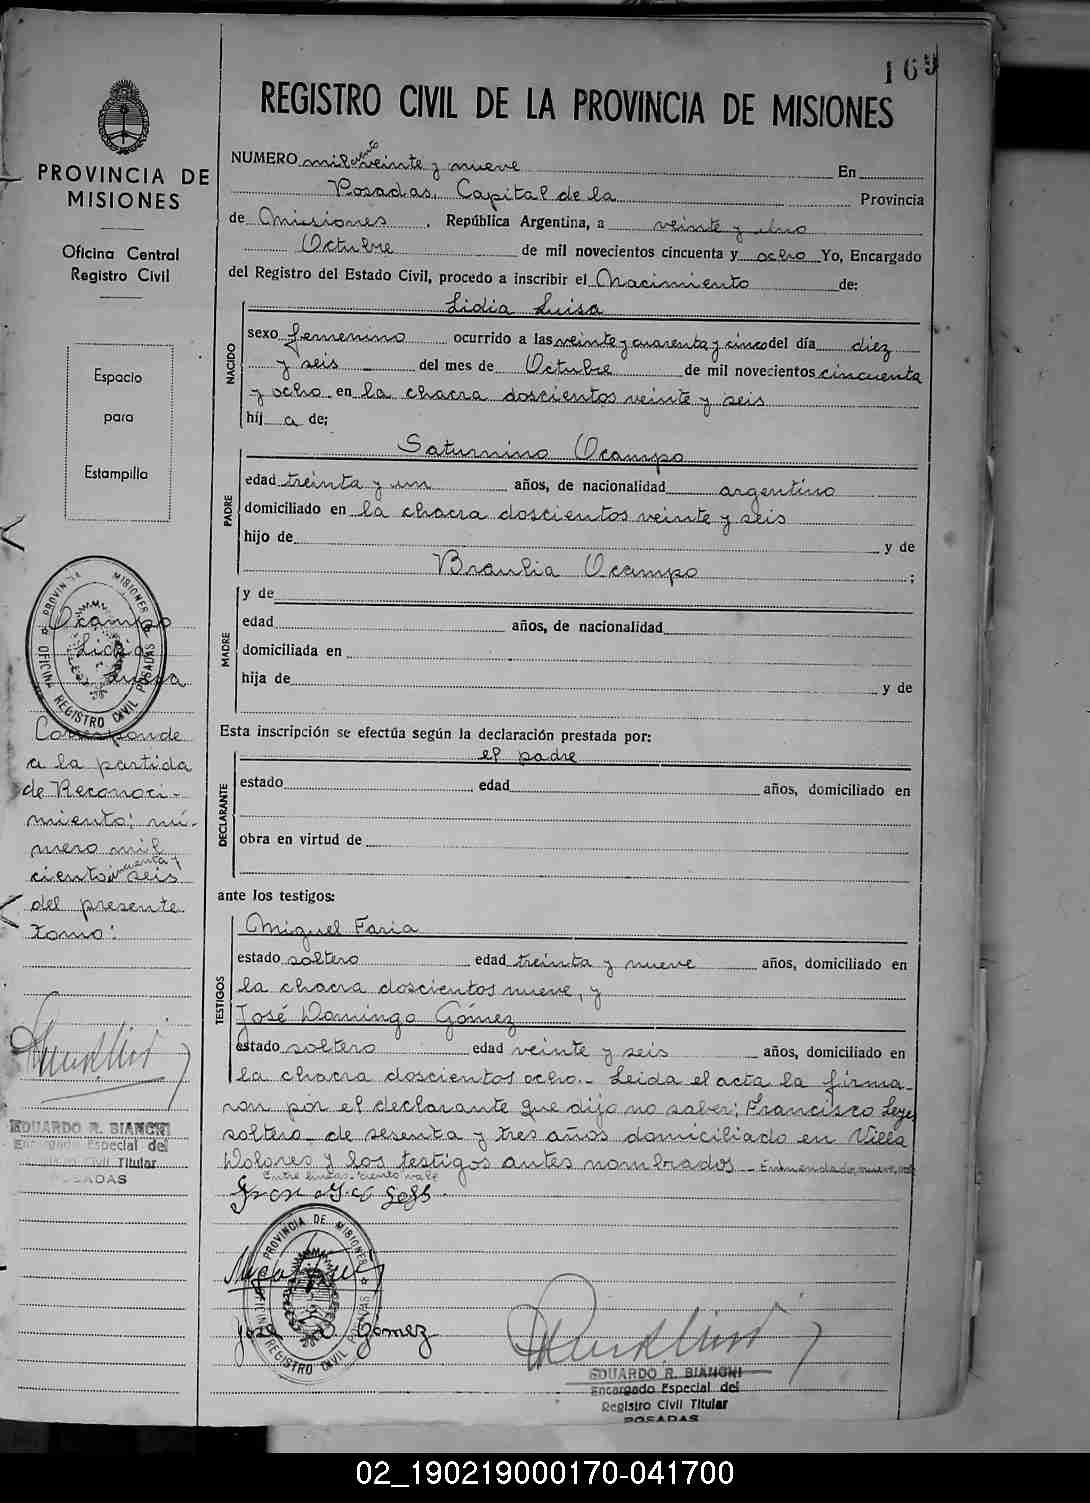 169
REGISTRO CIVIL DE LA PROVINCIA DE MISIONES
PROVINCIA DE
MISIONES
Oficina Central
Registro Civil
Espacio
para
Estampilla
PROVINCIA MISIONES
OFICINA REGISTRO CIVIL POSADAS
Ocampo
Lidia
Luisa
Corresponde
a la partida
de Reconoci-
miento: nú-
mero mil
cincuenta y
ciento seis
del presente
tomo:
EDUARDO R. BIANCHI
Encargado Especial del
Registro Civil Titular
POSADAS
ciento
NUMERO mil veinte y nueve En
Posadas, Capital de la Provincia
de Misiones, República Argentina, a veinte y uno
Octubre de mil novecientos cincuenta y ocho Yo, Encargado
del Registro del Estado Civil, procedo a inscribir el Nacimiento de:
NACIDO
Lidia Luisa
sexo femenino ocurrido a las veinte y cuarenta y cinco del día diez
y seis del mes de Octubre de mil novecientos cincuenta
y ocho en la chacra doscientos veinte y seis
hij a de;
PADRE
Saturnino Ocampo
edad treinta y un años, de nacionalidad argentino
domiciliado en la chacra doscientos veinte y seis
hijo de y de
Braulia Ocampo ;
MADRE
y de
edad años, de nacionalidad
domiciliada en
hija de y de
Esta inscripción se efectúa según la declaración prestada por:
DECLARANTE
el padre
estado edad años, domiciliado en
obra en virtud de
ante los testigos:
TESTIGOS
Miguel Faria
estado soltero edad treinta y nueve años, domiciliado en
la chacra doscientos nueve, y
José Domingo Gómez
estado soltero edad veinte y seis años, domiciliado en
la chacra doscientos ocho.- Leida el acta la firma-
ron por el declarante que dijo no saber: Francisco Leyes
soltero de sesenta y tres años domiciliado en Villa
Dolores y los testigos antes nombrados - Enmendado nueve, vale
Entre lineas: ciento vale
PROVINCIA DE MISIONES
OFICINA REGISTRO CIVIL POSADAS
José D Gomez
EDUARDO R. BIANCHI
Encargado Especial del
Registro Civil Titular
POSADAS
02_190219000170-041700